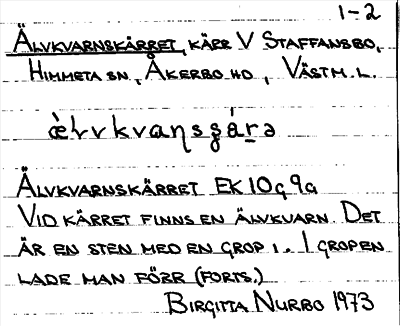 1-2
ÄLVKVARNSKÄRRET, KÄRR V STAFFANSBO,
HIMMETA SN, ÅKERBO HD, VÄSTM. L.
ÄLVKVARNSKÄRRET EK 10G 9a
VID KÄRRET FINNS EN ÄLVKVARN. DET
ÄR EN STEN MED EN GROP I. I GROPEN
LADE MAN FÖRR (FORTS.)
BIRGITTA NURBO 1973